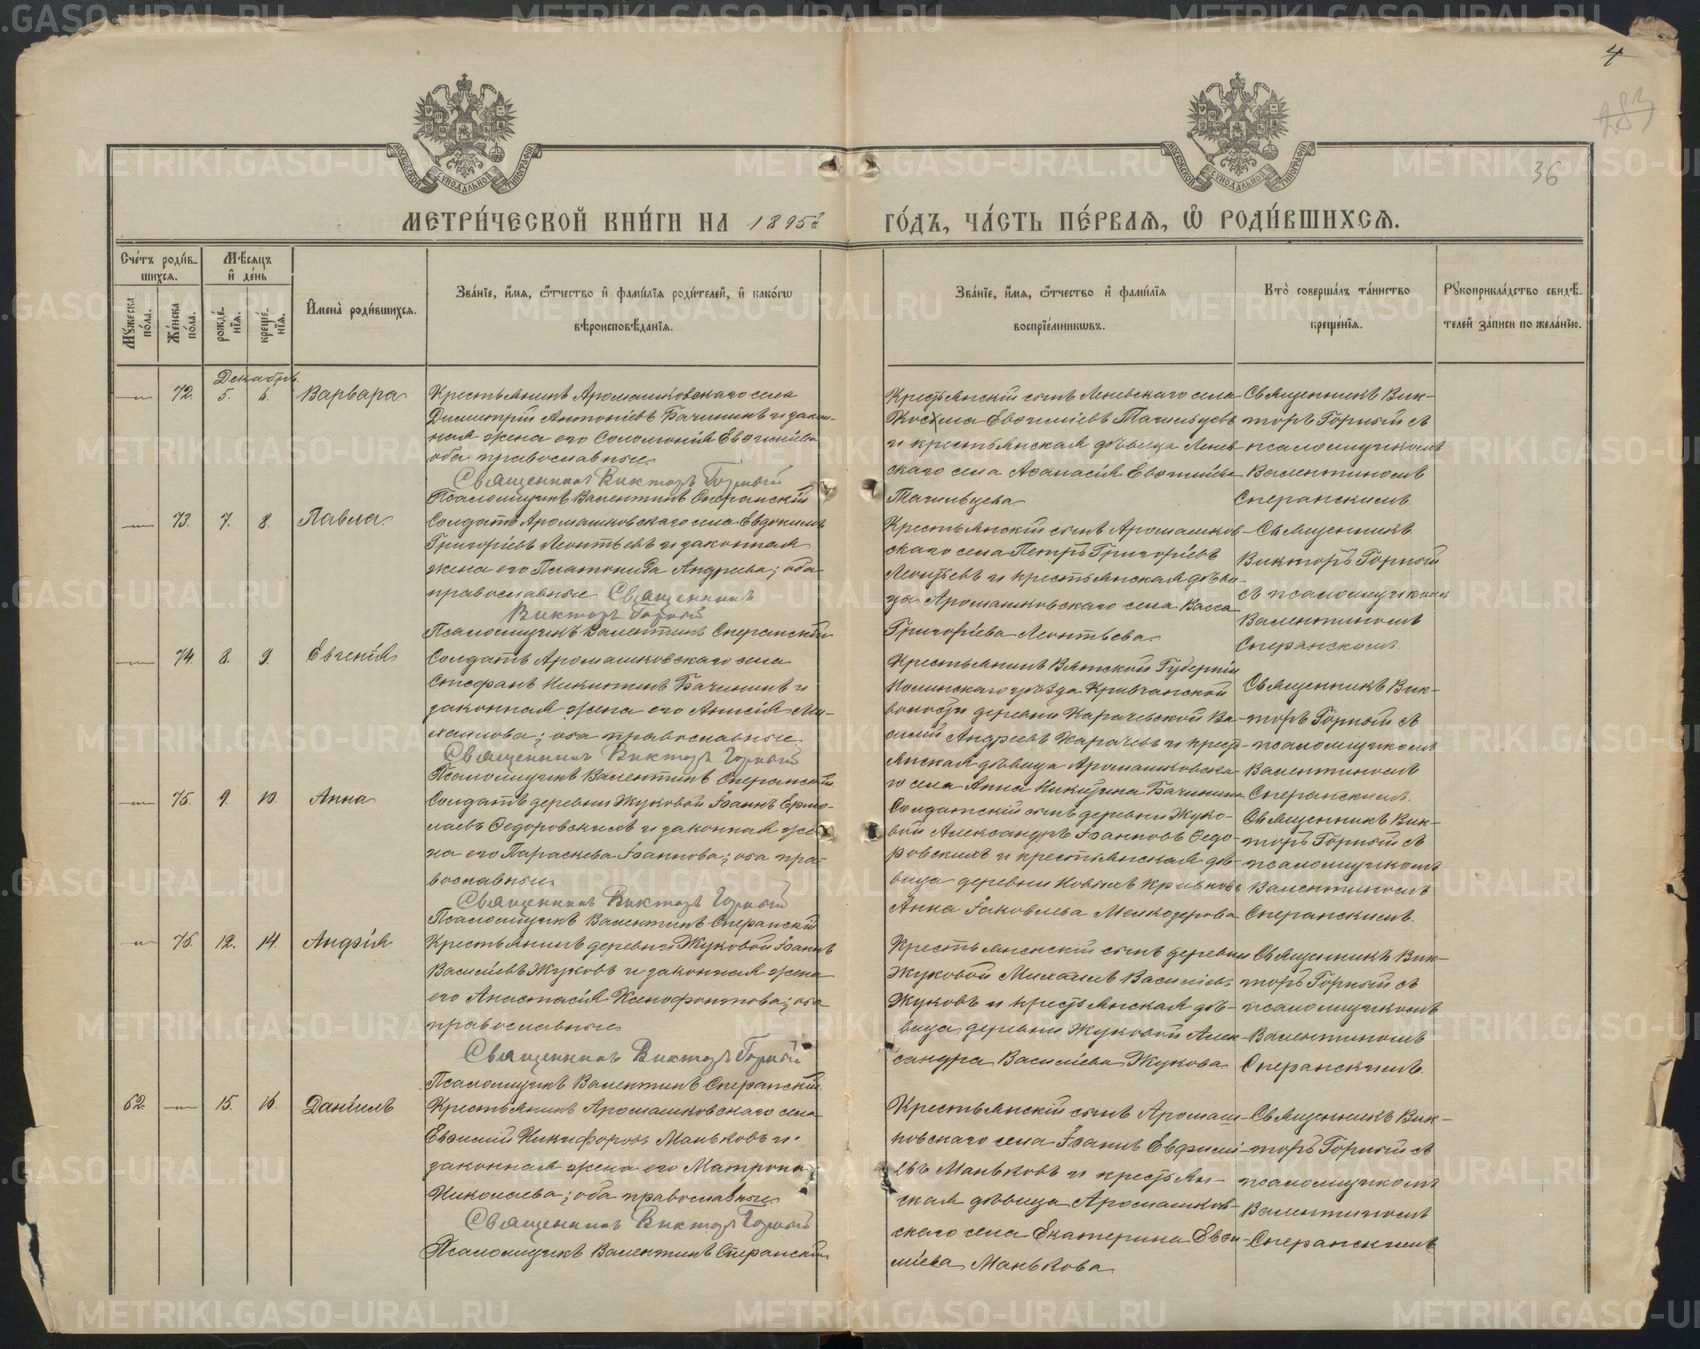 4
283
36
МЕТРИ́ЧЕСКОЙ КНИ́ГИ НА 1895й ГО́ДЪ, ЧА́СТЬ ПЕ́РВАЯ, Ѡ҆ РОДИ́ВШИХСЯ.
Сче́тъ роди́в-
шихся.
Мѣ́сяцъ
и҆ де́нь
Мꙋ́жеска
по́ла.
Же́нска
по́ла.
рожде́-
нїѧ.
креще́-
нїѧ.
И҆мена̀ роди́вшихсѧ.
Зва́нїе, и҆́мѧ, ѻ҆́тчество и҆ фами́лїѧ роди́телей, и҆ како́гѡ
вѣроисповѣ́данїѧ.
Зва́нїе, и҆́мѧ, ѻ҆́тчество и҆ фами́лїѧ
воспрїе́мникѡвъ.
Кто̀ соверша́лъ та́инство
креще́нїѧ.
Рꙋкоприкла́дство свидѣ́-
телей за́писи по жела́нїю.
Декабрь
72. 5. 6. Варвара
Крестьянинъ Аромашковскаго села
Димитрій Антоніевъ Бачининъ и закон-
ная жена его Соломонія Евѳиміева
оба православные
Священникъ Викторъ Горный
Псаломщикъ Валентинъ Сперанскій
Крестьянскій сынъ Леневскаго села
Косьма Евѳиміевъ Тагильцевъ
и крестьянская дѣвица Ленев-
скаго села Аѳанасія Евѳиміева
Тагильцева
Священникъ Вик-
торъ Горный съ
псаломщикомъ
Валентиномъ
Сперанскимъ.
73. 7. 8. Павла
Солдатъ Аромашковскаго села Евдокимъ
Григоріевъ Леонтьевъ и законная
жена его Платонида Андреева; оба
православные Священникъ
Викторъ Горный
Псаломщикъ Валентинъ Сперанскій
Крестьянскій сынъ Аромашков-
скаго села Петръ Григоріевъ
Леонтьевъ и крестьянская дѣви-
ца Аромашковскаго села Васса
Григоріева Леонтьева
Священникъ
Викторъ Горный
съ псаломщикомъ
Валентиномъ
Сперанскимъ.
74. 8. 9. Евгенія
Солдатъ Аромашковскаго села
Стефанъ Никитинъ Бачининъ и
законная жена его Анисія Ми-
хаилова; оба православные
Священникъ Викторъ Горный
Псаломщикъ Валентинъ Сперанскій
Крестьянинъ Вятской Губерніи
Нолинскаго уѣзда Кривчанской
волости деревни Карачевской Ва-
силій Андреевъ Карачевъ и крестъ-
янская дѣвица Аромашковска-
го села Анна Никитина Бачинина
Священникъ Вик-
торъ Горный съ
псаломщикомъ
Валентиномъ
Сперанскимъ.
75. 9. 10. Анна
Солдатъ деревни Жуковой Іоаннъ Ермо-
лаевъ Ѳедоровскихъ и законная же-
на его Параскева Іоаннова; оба пра-
вославные
Священникъ Викторъ Горный
Псаломщикъ Валентинъ Сперанскій
Солдатскій сынъ деревни Жуко-
вой Александръ Іоанновъ Ѳедо-
ровскихъ и крестьянская дѣ-
вица деревни Новыхъ Кривковъ
Анна Іаковлева Мелкозерова
Священникъ Вик-
торъ Горный съ
псаломщикомъ
Валентиномъ
Сперанскимъ.
76. 12. 14. Анфія
Крестьянинъ деревни Жуковой Іоаннъ
Василіевъ Жуковъ и законная жена
его Анастасія Ксенофонтова; оба
православные
Священникъ Викторъ Горный
Псаломщикъ Валентинъ Сперанскій
Крестьянскій сынъ деревни
Жуковой Михаилъ Василіевъ
Жуковъ и крестьянская дѣ-
вица деревни Жуковой Алек-
сандра Василіева Жукова
Священникъ Вик-
торъ Горный съ
псаломщикомъ
Валентиномъ
Сперанскимъ.
62. 15. 16. Даніилъ
Крестьянинъ Аромашковскаго села
Евѳимій Никифоровъ Маньковъ и
законная жена его Матрона
Николаева; оба православные
Священникъ Викторъ Горный
Псаломщикъ Валентинъ Сперанскій
Крестьянскій сынъ Аромаш-
ковскаго села Іоаннъ Евфимі-
евъ Маньковъ и крестьян-
ская дѣвица Аромашков-
скаго села Екатерина Евѳи-
міева Манькова
Священникъ Вик-
торъ Горный съ
псаломщикомъ
Валентиномъ
Сперанскимъ
METRIKI.GASO-URAL.RU